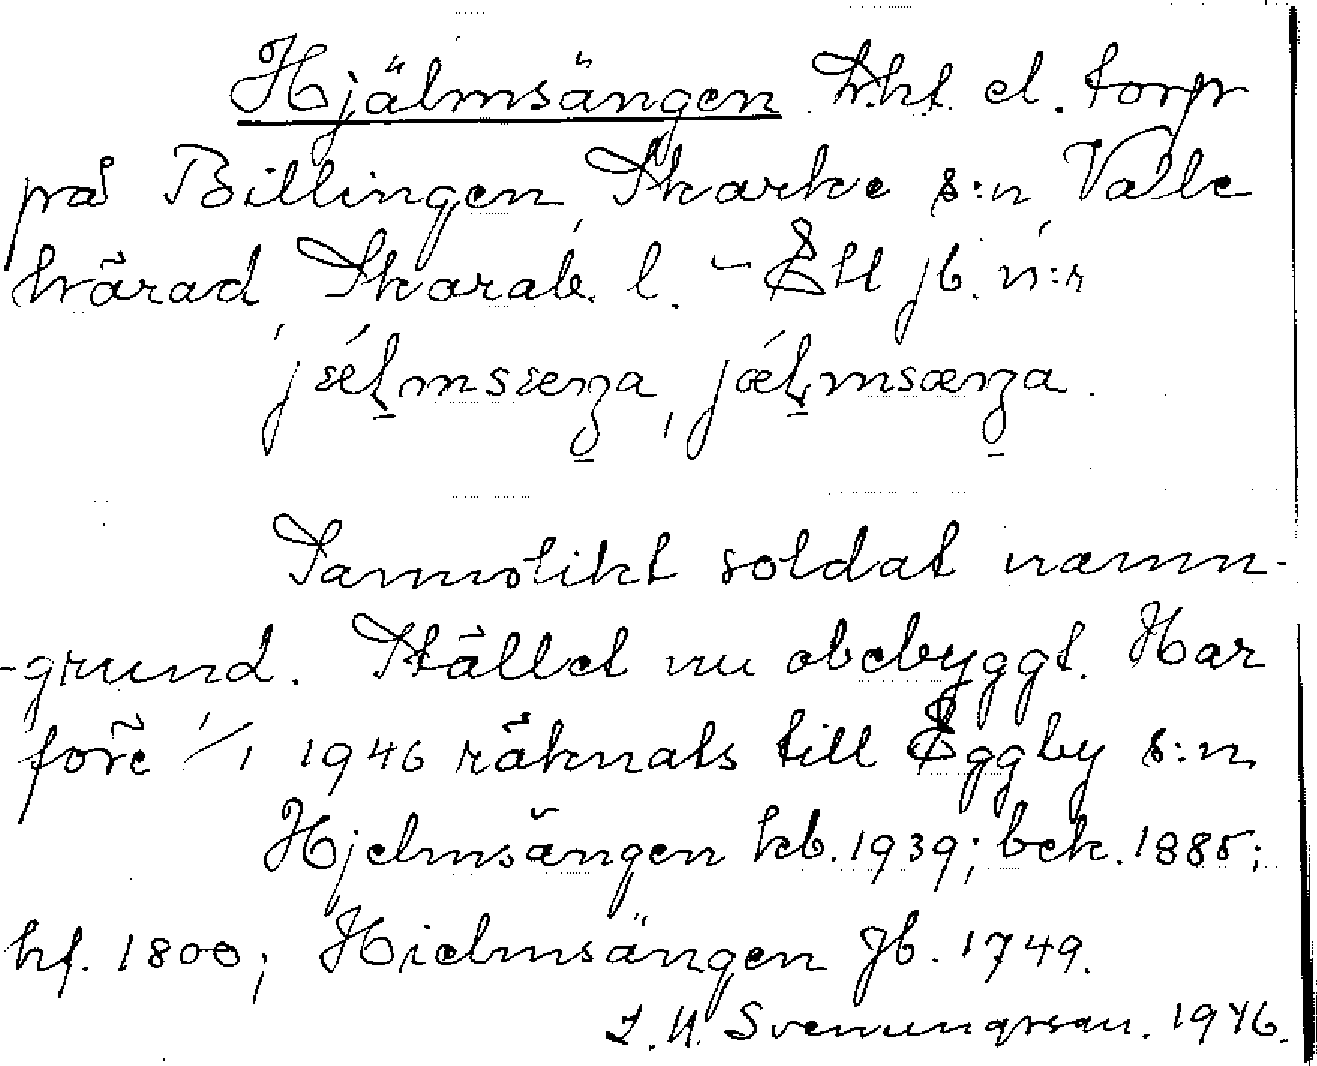 Hjälmsängen trkt. el. torp
på Billingen, Skarke s:n, Valle
härad, Skarab. l. – Ett jb. n:r
jǽlmsæŋa, jǽlmsæŋa.
Sannolikt soldatnamn-
-grund. Stället nu obebyggt. Har
före 1/1 1946 räknats till Eggby s:n
Hjelmsängen kb. 1939; bek. 1885;
hf. 1800; Hielmsängen Jb. 1749.
Svenungsson. 1946.